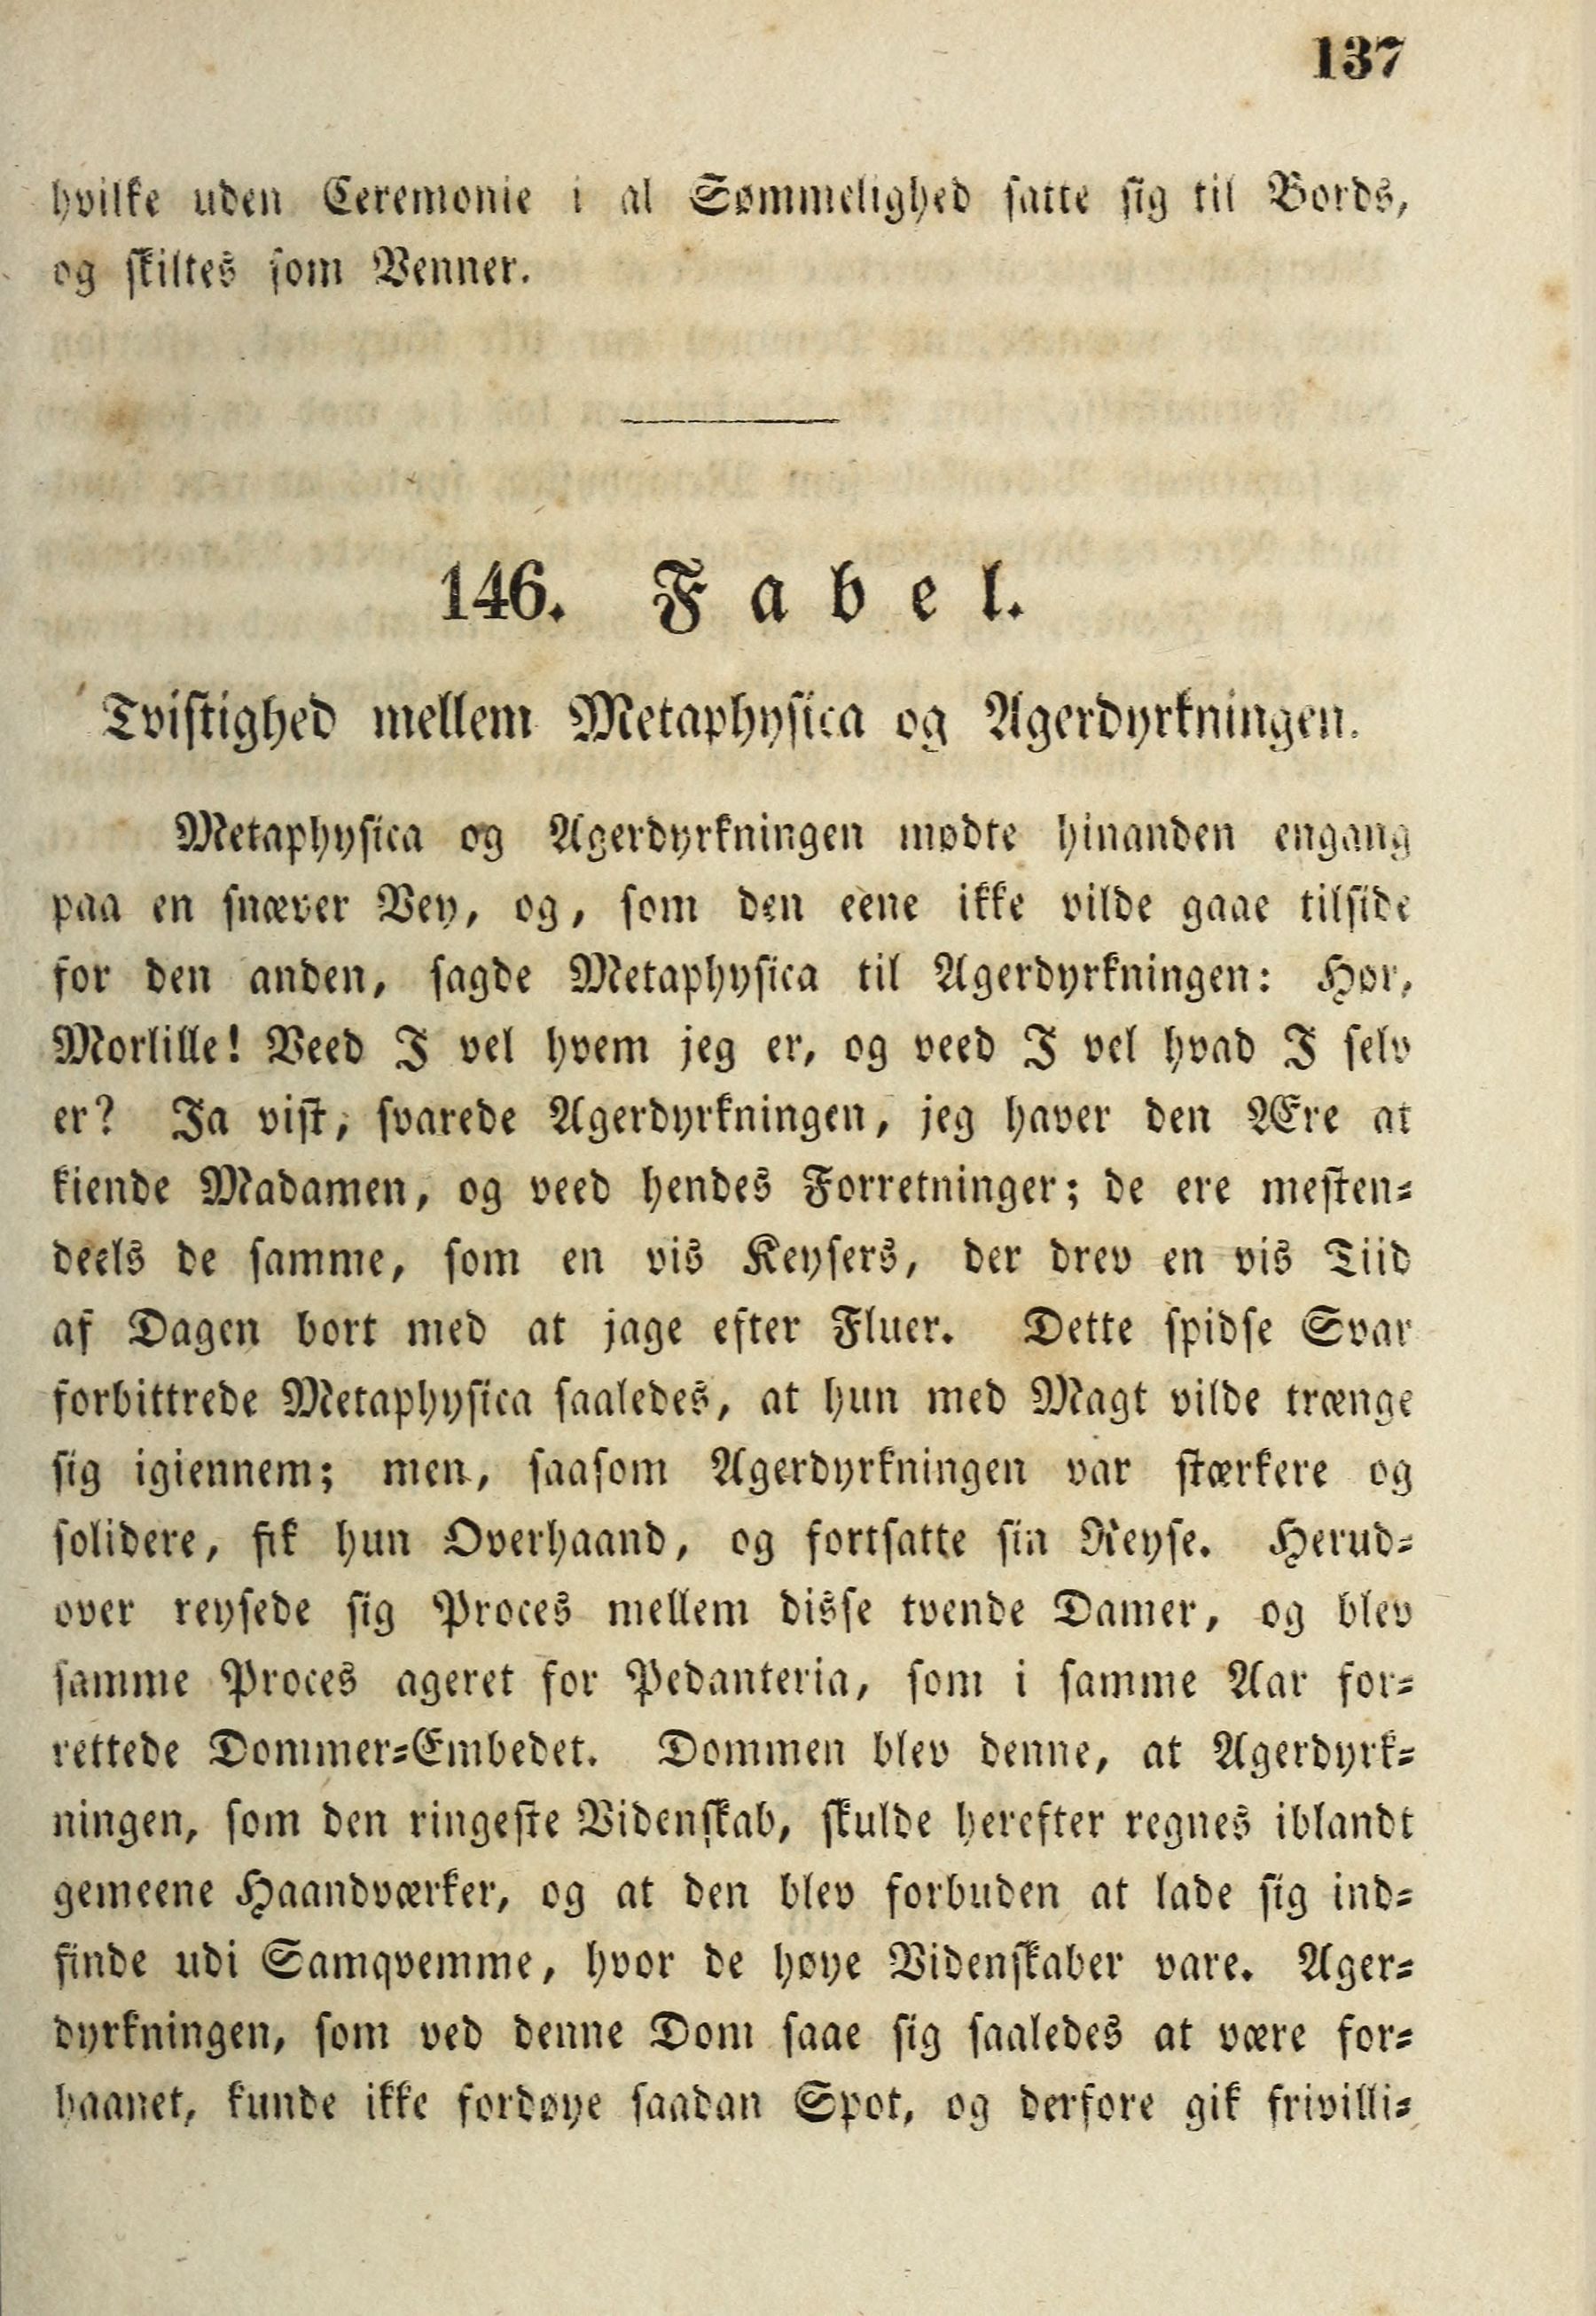 137
hvilke uden Ceremonie i al Sømmelighed satte sig til Bords,
og skiltes som Venner.
146. Fabel.
Tvistighed mellem Metaphysica og Agerdyrkningen.
Metaphysica og Agerdyrkningen mødte hinanden engang
paa en snæver Vey, og, som den eene ikke vilde gaae tilside
for den anden, sagde Metaphysica til Agerdyrkningen: Hør,
Morlille! Veed I vel hvem jeg er, og veed I vel hvad I selv
er? Ja vist, svarede Agerdyrkningen, jeg haver den Ære at
kiende Madamen, og veed hendes Forretninger; de ere mesten-
deels de samme, som en vis Keysers, der drev en vis Tiid
af Dagen bort med at jage efter Fluer. Dette spidse Svar
forbittrede Metaphysica saaledes, at hun med Magt vilde trænge
sig igiennem; men, saasom Agerdyrkningen var stærkere og
solidere, fik hun Overhaand, og fortsatte sin Reyse. Herud-
over reysede sig Proces mellem disse tvende Damer, og blev
samme Proces ageret for Pedanteria, som i samme Aar for-
rettede Dommer-Embedet. Dommen blev denne, at Agerdyrk-
ningen, som den ringeste Videnskab, skulde herefter regnes iblandt
gemeene Haandværker, og at den blev forbuden at lade sig ind-
finde udi Samqvemme, hvor de høye Videnskaber vare. Ager-
dyrkningen, som ved denne Dom saae sig saaledes at være for-
haanet, kunde ikke fordøye saadan Spot, og derfore gik frivilli-